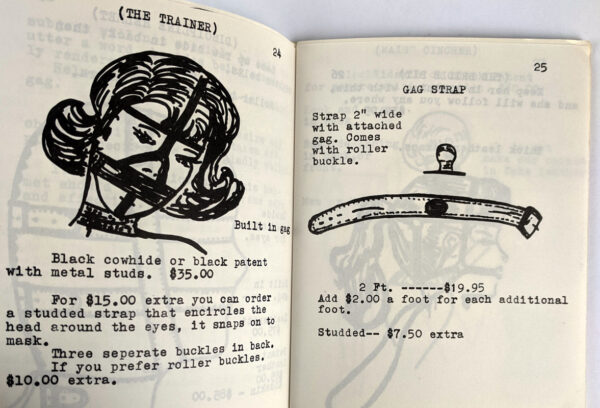 (THE TRAINER)
24
Built in gag
Black cowhide or black patent
with metal studs. $35.00
For $15.00 extra you can order
a studded strap that encircles the
head around the eyes, it snaps on to
mask.
Three seperate buckles in back.
If you prefer roller buckles.
$10.00 extra.
25
GAG STRAP
Strap 2" wide
with attached
gag. Comes
with roller
buckle.
2 Ft. ------$19.95
Add $2.00 a foot for each additional
foot.
Studded-- $7.50 extra